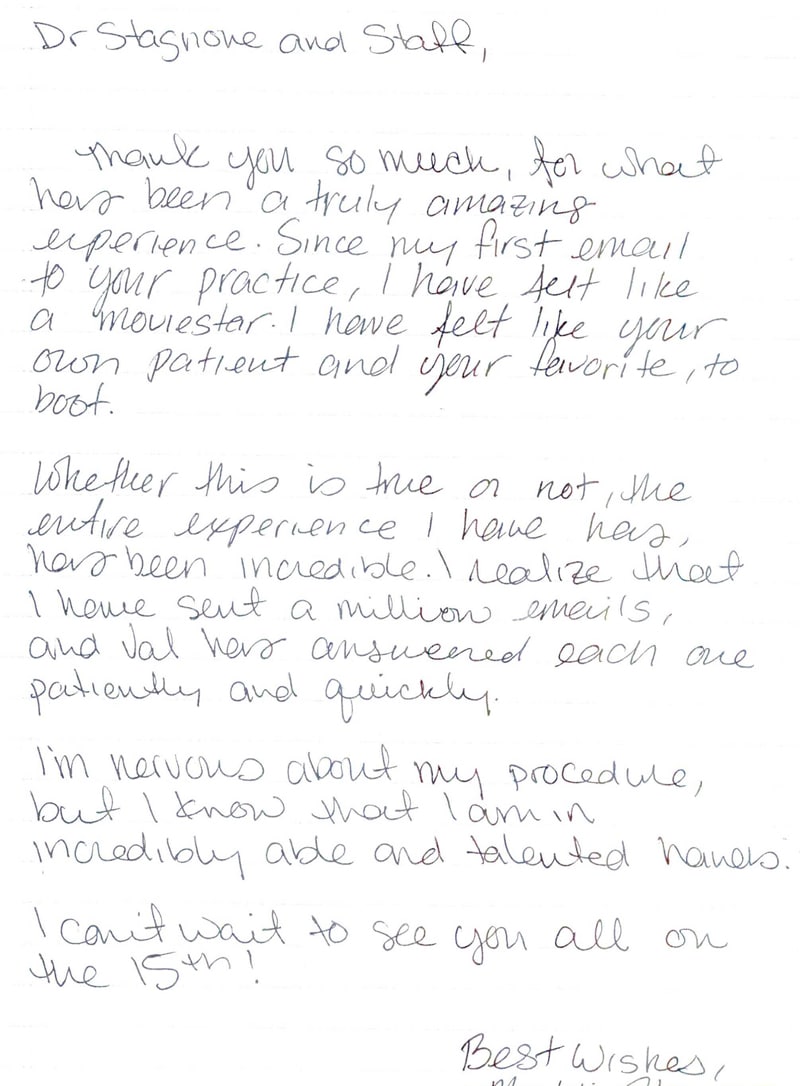 Dr Stagnone and Staff,
Thank you so much, for what
has been a truly amazing
experience. Since my first email
to your practice, I have felt like
a moviestar. I have felt like your
own patient and your favorite, to
boot.
Whether this is true or not, the
entire experience I have has,
has been incredible. I realize that
I have sent a million emails,
and Val has answered each one
patiently and quickly.
I'm nervous about my procedure,
but I know that I am in
incredibly able and talented hands.
I can't wait to see you all on
the 15th!
Best Wishes,